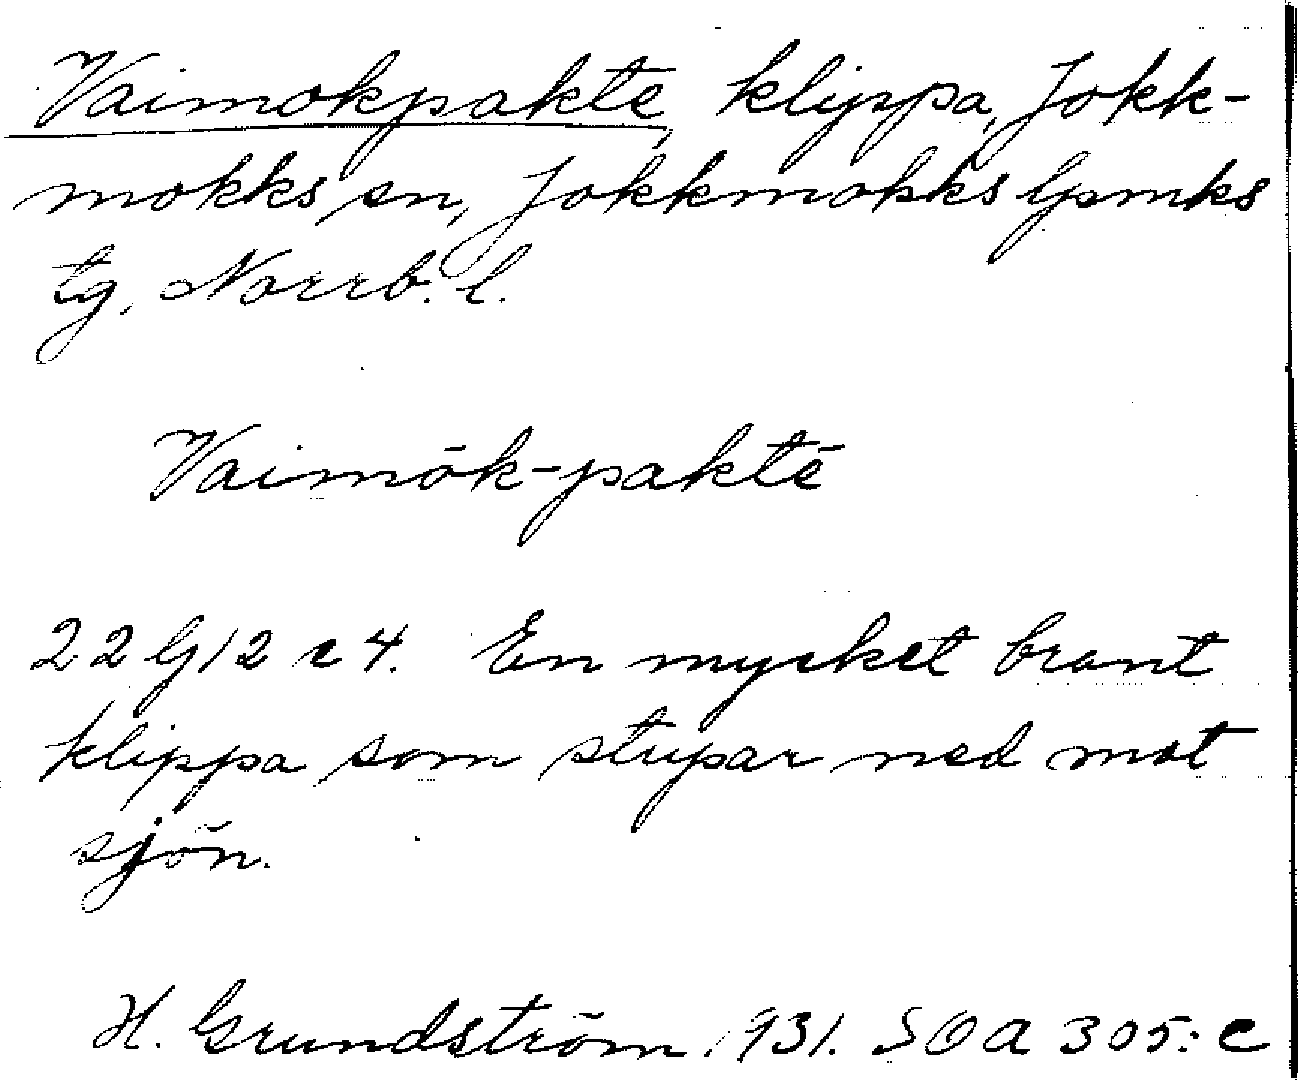 Vaimokpakte, klippa, Jokk-
mokks sn, Jokkmokks lpmks
tg, Norrb. l.
Vaimōk-paktē
22 G 12 c 4. En mycket brant
klippa som stupar ned mot
sjön.
H. Grundström 1931. SOA 305: c